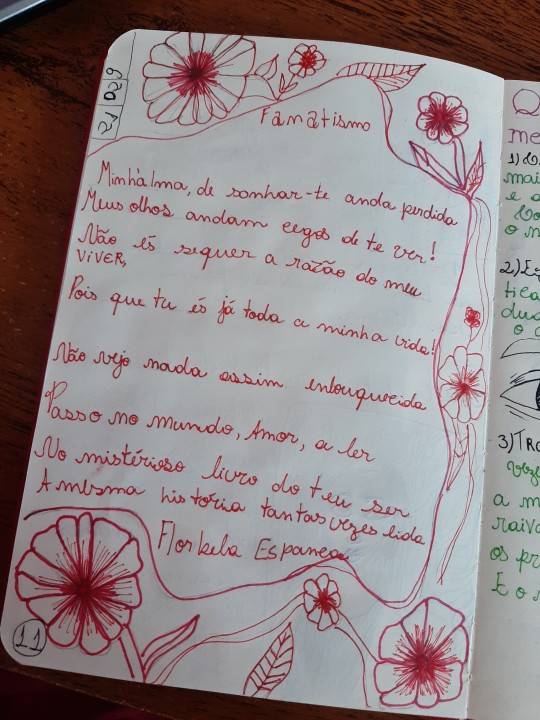 Fanatismo
Minh'alma, de sonhar-te anda perdida
Meus olhos andam cegos de te ver!
Não és sequer a razão do meu
VIVER,
Pois que tu és já toda a minha vida!
Não vejo nada assim enlouquecida
Passo no mundo, Amor, a ler
No mistérioso livro do teu ser
A mesma historia tantas vezes lida
Florbela Espanca
11
me
1)
mai
e a
o m
2)
tica
dua
3) TRO
veze
a m
raiva
os pr
E o